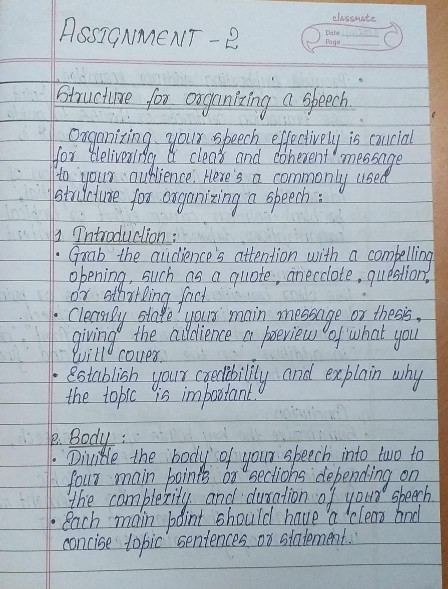 ASSIGNMENT - 2
classmate
Date
Page
Structure for organizing a speech
Organizing your speech effectively is crucial
for delivering a clear and coherent message
to your audience. Here's a commonly used
structure for organizing a speech :
1. Introduction :
• Grab the audience's attention with a compelling
opening, such as a quote, anecdote, question,
or startling fact.
• Clearify state your main message or thesis,
giving the audience a preview of what you
will cover.
• Establish your credibility and explain why
the topic is important.
2. Body :
• Divide the body of your speech into two to
four main points or sections depending on
the complexity and duration of your speech
• Each main point should have a clear and
concise topic sentences or statement.